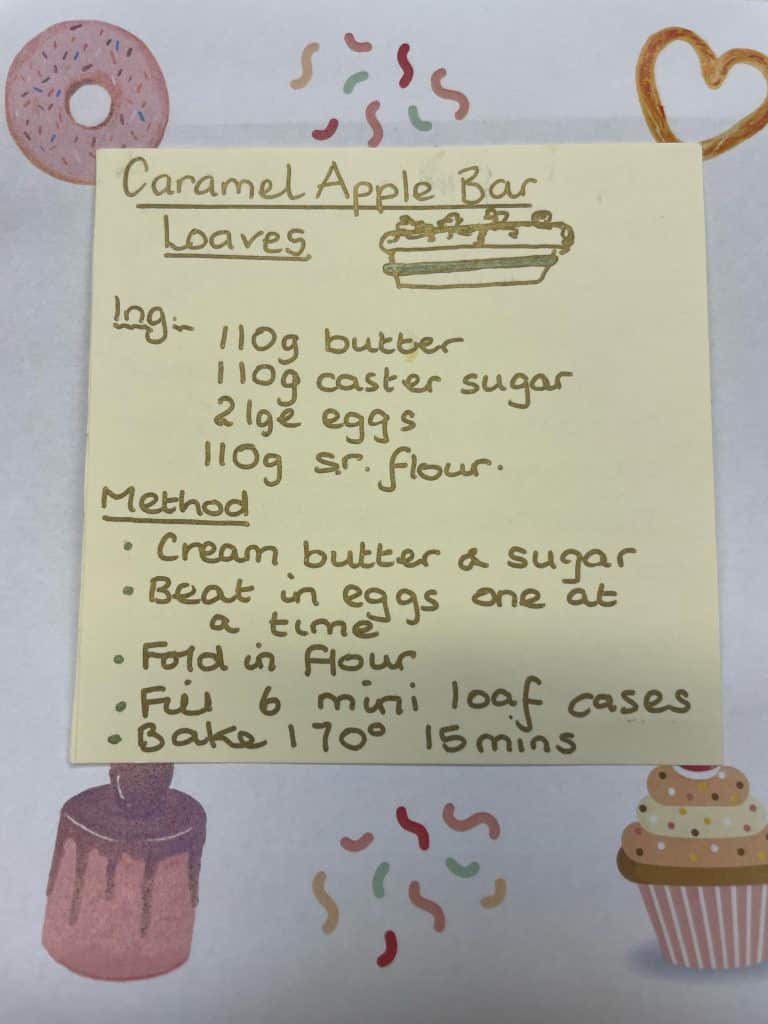 Caramel Apple Bar
Loaves
Ing:-
110g butter
110g caster sugar
2 lge eggs
110g s.r. flour.
Method
• Cream butter & sugar
• Beat in eggs one at
a time
• Fold in flour
• Fill 6 mini loaf cases
• Bake 170° 15mins